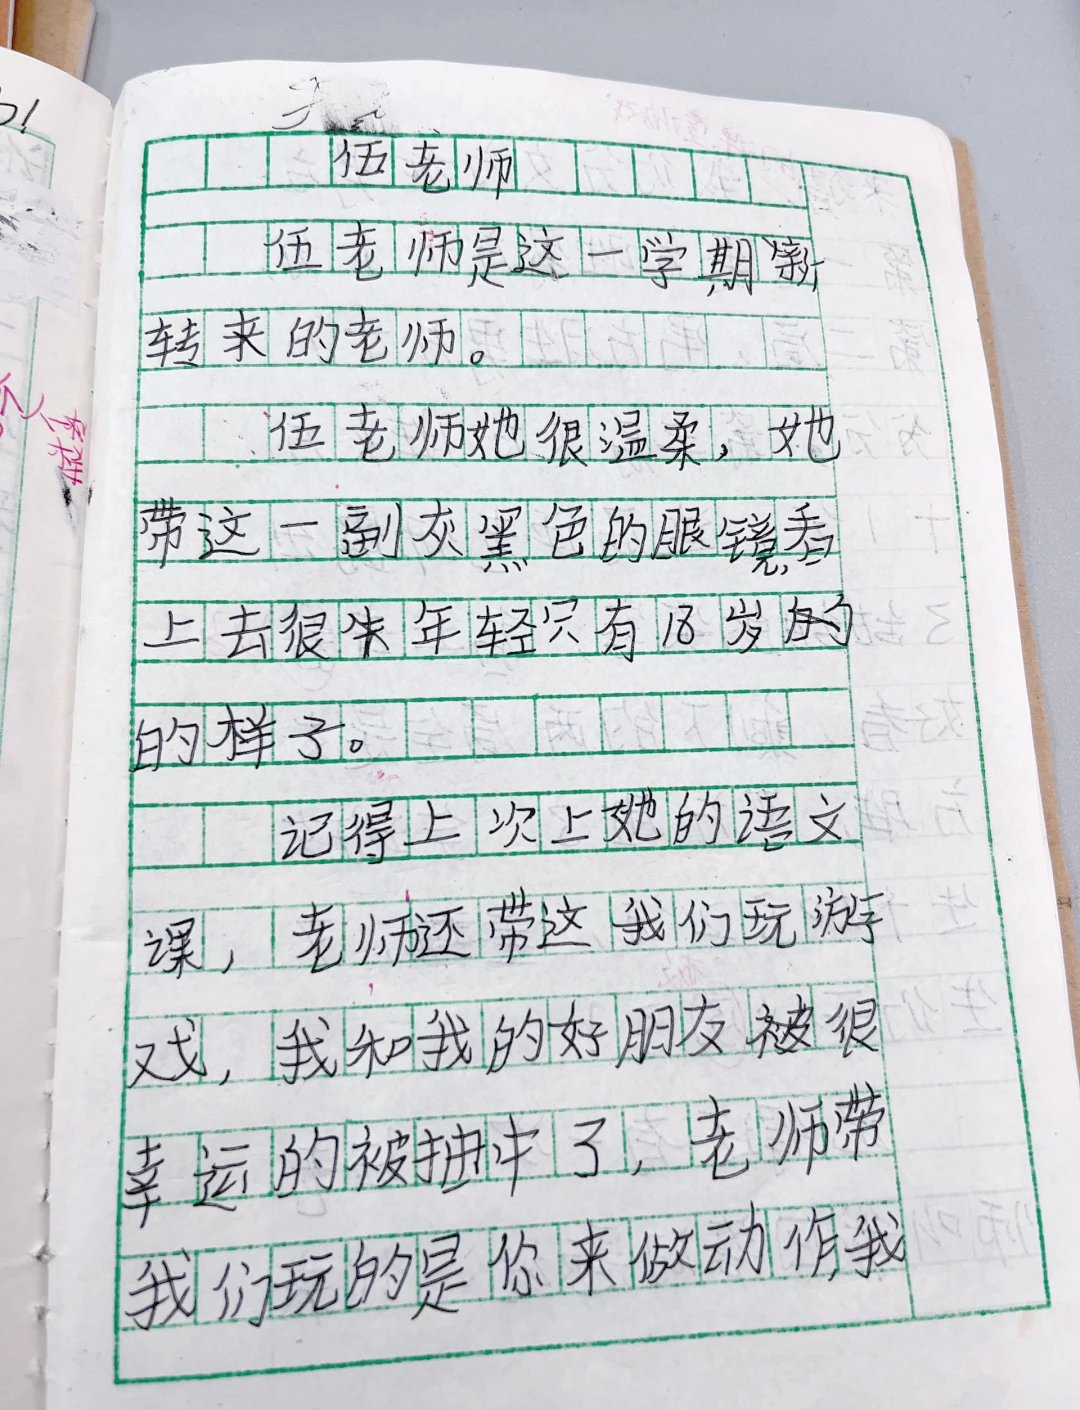 伍老师
伍老师是这一学期新
转来的老师。
伍老师她很温柔，她
带这一副灰黑色的眼镜，看
上去很年轻只有18岁的
的样子。
记得上次上她的语文
课，老师还带这我们玩游
戏，我和我的好朋友被很
幸运的被抽中了，老师带
我们玩的是你来做动作，我